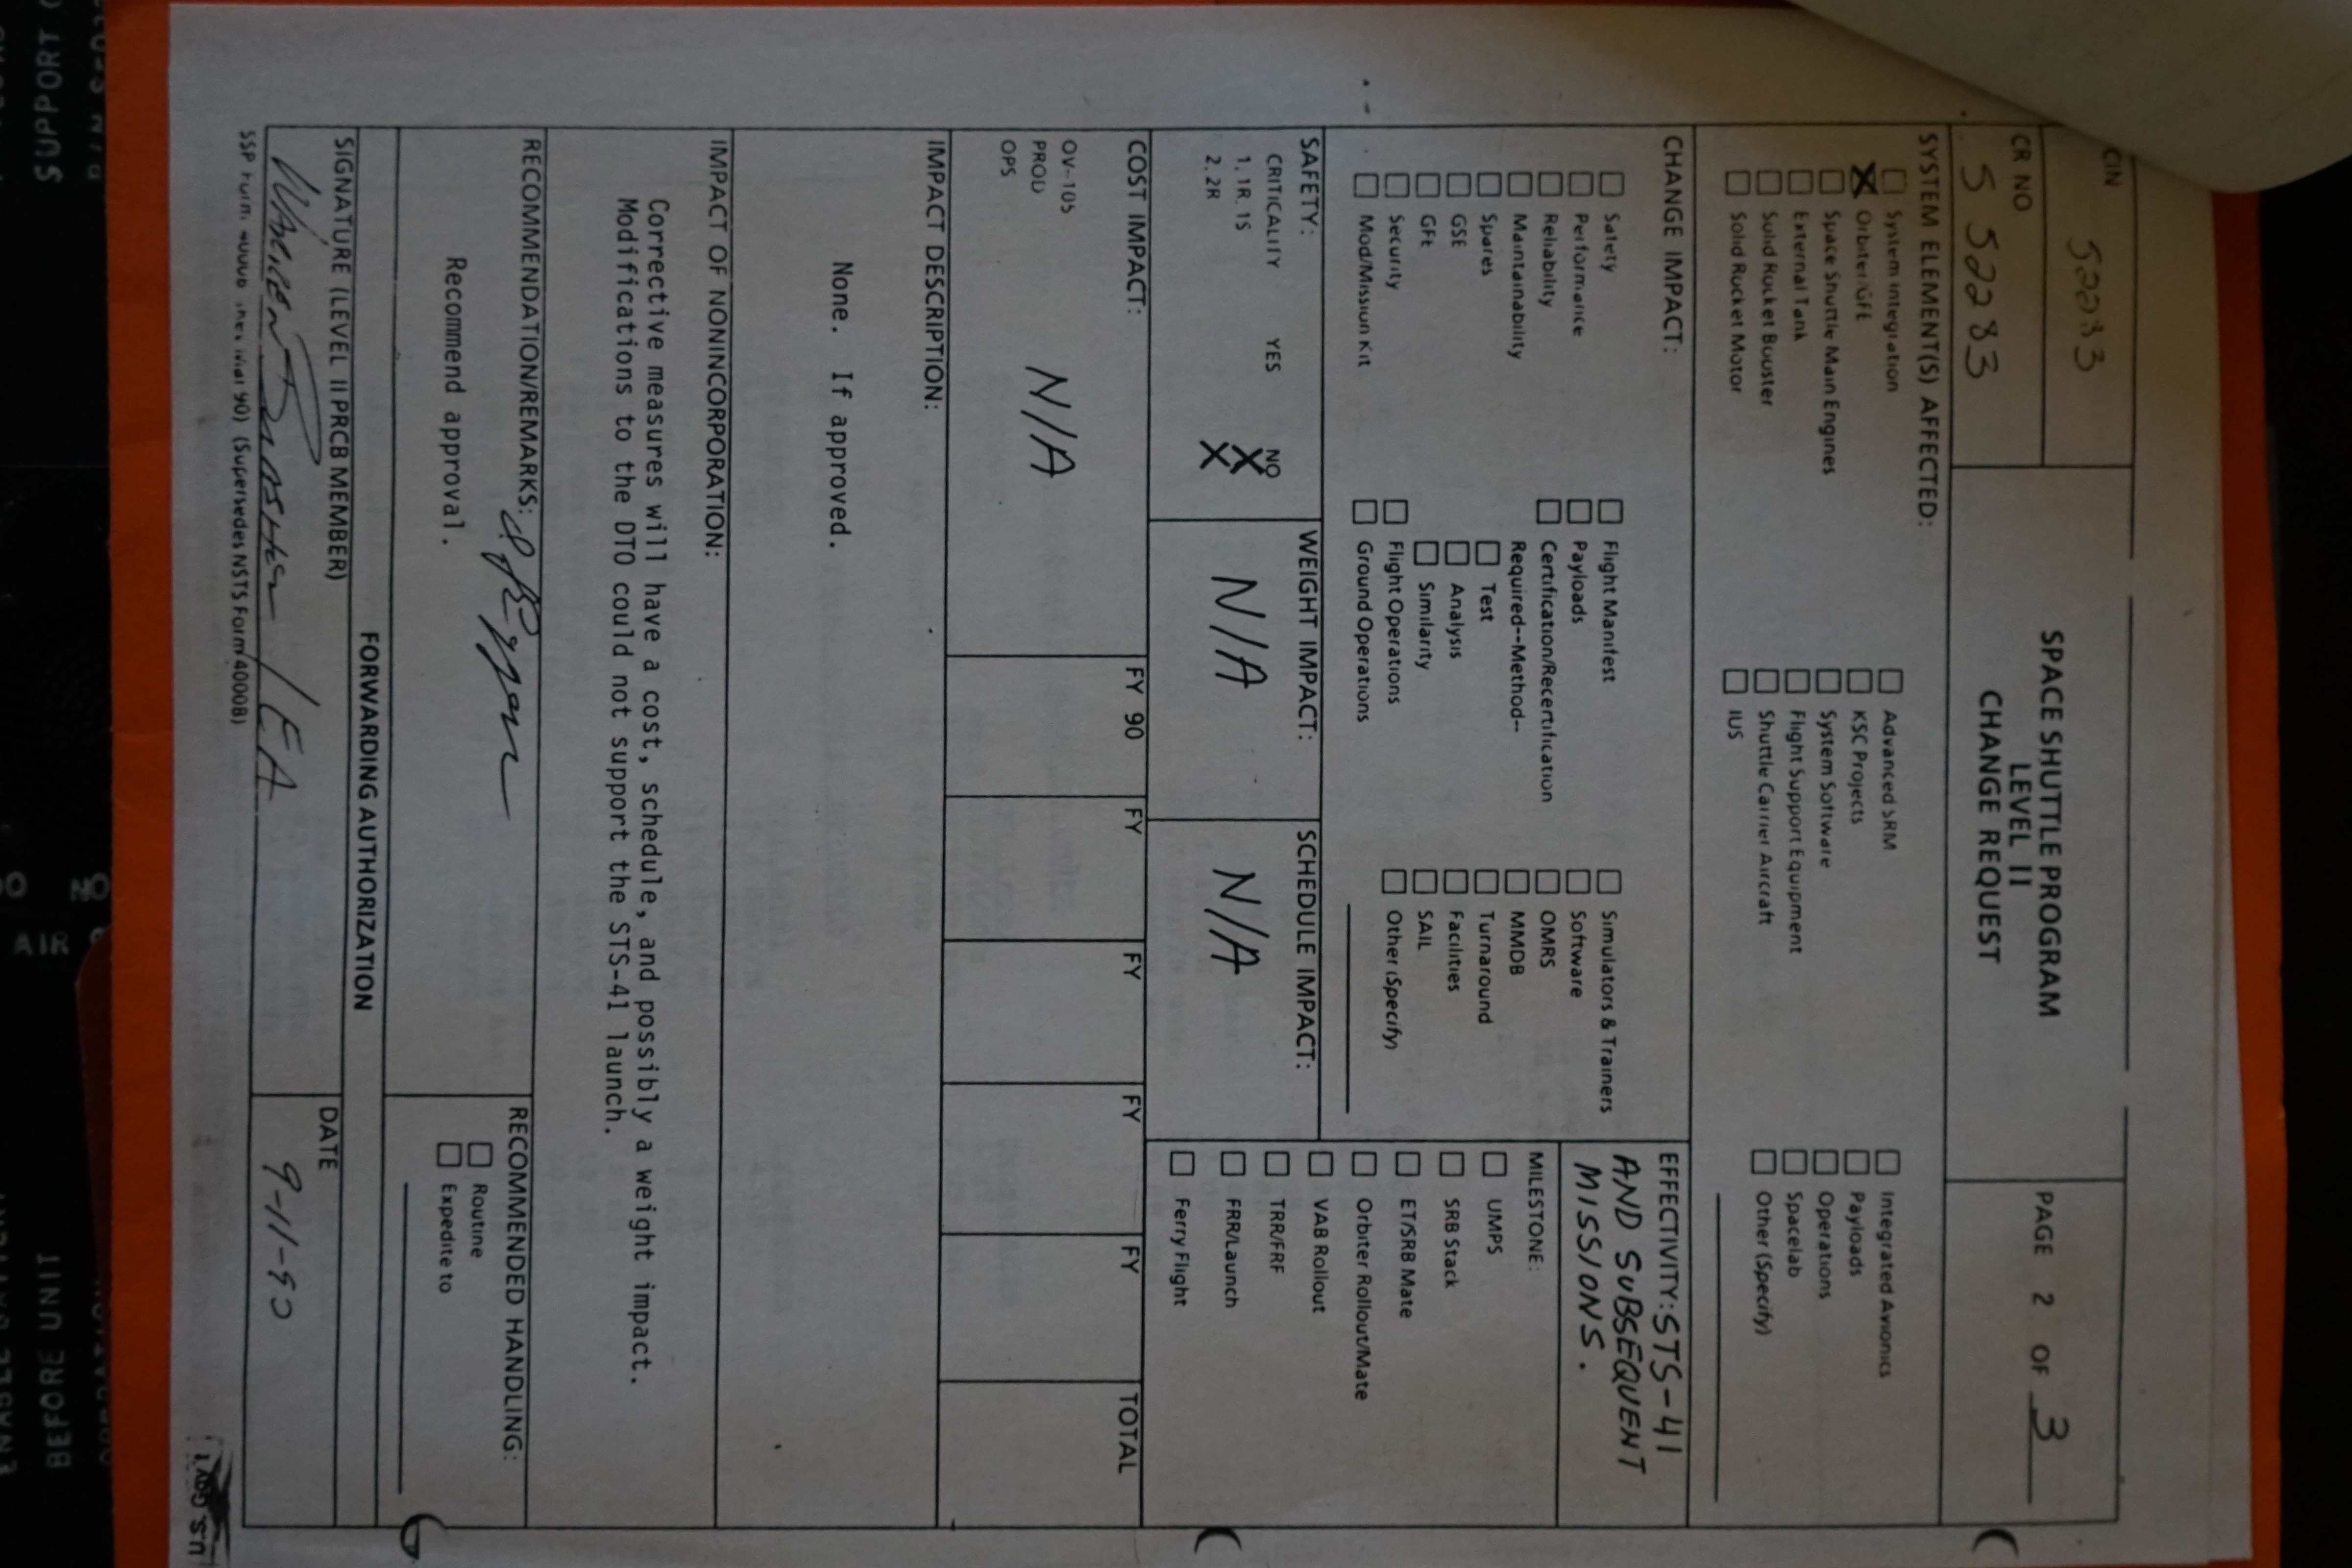 CIN
CR NO
S 52283
SPACE SHUTTLE PROGRAM
LEVEL II
CHANGE REQUEST
PAGE 2 OF 3
SYSTEM ELEMENT(S) AFFECTED:
System Integration
X Orbiter/GFE
Space Shuttle Main Engines
External Tank
Solid Rocket Booster
Solid Rocket Motor
Advanced SRM
KSC Projects
System Software
Flight Support Equipment
Shuttle Carrier Aircraft
IUS
Integrated Avionics
Payloads
Operations
Spacelab
Other (Specify)
CHANGE IMPACT:
Safety
Performance
Reliability
Maintainability
Spares
GSE
GFE
Security
Mod/Mission Kit
Flight Manifest
Payloads
Certification/Recertification
Required--Method--
Test
Analysis
Similarity
Flight Operations
Ground Operations
Simulators & Trainers
Software
OMRS
MMDB
Turnaround
Facilities
SAIL
Other (Specify)
EFFECTIVITY: STS-41
AND SUBSEQUENT
MISSIONS.
MILESTONE:
UMPS
SRB Stack
ET/SRB Mate
Orbiter Rollout/Mate
VAB Rollout
TRR/FRF
FRR/Launch
Ferry Flight
SAFETY:
CRITICALITY YES NO
1, 1R, 1S X
2, 2R X
WEIGHT IMPACT:
N/A
SCHEDULE IMPACT:
N/A
COST IMPACT: FY 90 FY FY FY FY TOTAL
OV-105
PROD
OPS
N/A
IMPACT DESCRIPTION:
None. If approved.
IMPACT OF NONINCORPORATION:
Corrective measures will have a cost, schedule, and possibly a weight impact.
Modifications to the DTO could not support the STS-41 launch.
RECOMMENDATION/REMARKS:
Recommend approval.
RECOMMENDED HANDLING:
Routine
Expedite to
FORWARDING AUTHORIZATION
SIGNATURE (LEVEL II PRCB MEMBER)
/EA
DATE
9-11-90
(Supersedes NSTS Form 4000B)
U.S. GOV'T
SUPPORT
AIR
BEFORE UNIT